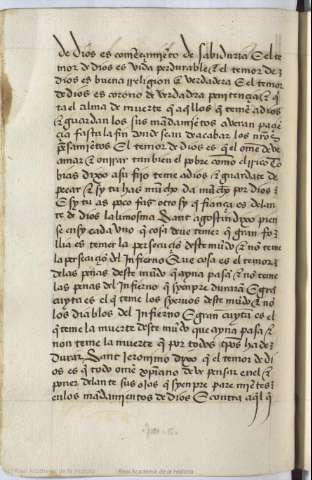 de dios es comẽçamjẽto de sabiduria E el te
mor de dios es vida perdurable & el temor de
dios es buena rreligion & verdadera E el temor
de dios es corono de verdadra penitençia & q̃
ta el alma de muerte q̃ aq̃llos q̃ temẽ adios
& guardan los sus mãdamjẽtos aueran pa
çia fasta la fin donde sean de acabar los nr̃os
pẽsamjẽtos El temor de dios es q̃ el ome deue
amar & onrrar tan bien el pobre como el rrico to
bias dixo asu fijo teme adios & guardate de
pecar & sy tu has mucho da mucho por dios
E sy tu as poco faz otro sy q̃ fiança es delan
te de dios la limosna Sant agostin dixo pien
se en sy cada vno q̃ cosa deue temer q̃ gran fo
llia es temer la persecuçiõ deste mũdo & nõ teme
la persecuçiõ del Infierno E que cosa es el temor
delas penas deste mũdo q̃ ayna pasã & nõ teme
las penas del Infierno q̃ syenpre durarã E grã
cuyta es el q̃ teme los syeruos deste mũdo & nõ
los diablos del Infierno E gran cuyta es el
q̃ teme la muerte deste mũdo que ayna pasa &
non teme la muerte q̃ por todos tp̃os ha de
durar Sant Jeronimo dixo q̃ el temor de di
os es q̃ todo ome xp̃iano deue pensar en el &
poner delante sus ojos q̃ syenpre pare mjẽtes
en los mãdamjẽtos de dios E contra aq̃l q̃
Real Academia de la Historia
Real Academia de la Historia